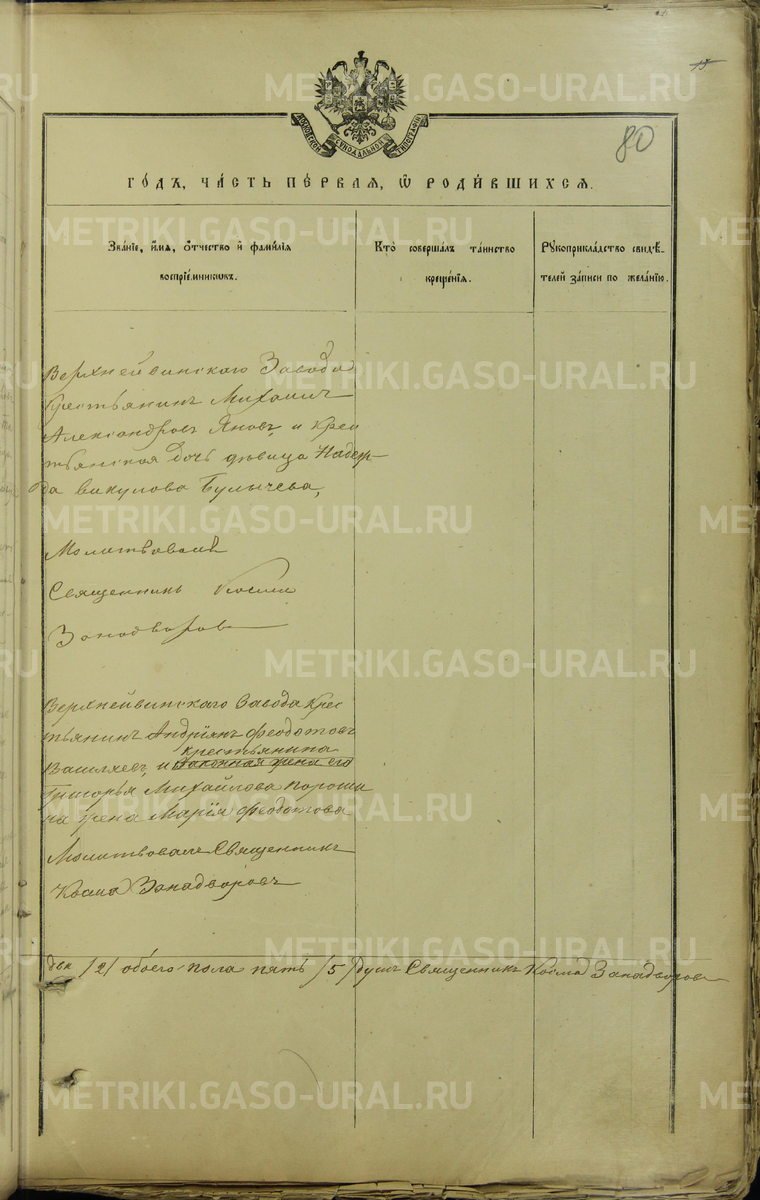 METRIKI.GASO-URAL.RU
МОСКОВСКОЙ СѴНОДАЛЬНОЙ ТИПОГРАФІИ
80
ГО́ДЪ, ЧА́СТЬ ПЕ́РВАЯ, Ѡ҆ РОДИ́ВШИХСЯ.
Зва́нїе, и҆́мя, ѻ҆́тчество и҆ фами́лїя
воспрїе́мниковъ.
Кто̀ совершалъ та́инство
креще́нїя.
Рꙋкоприкла́дство свидѣ́-
телей за́писи по жела́нїю.
Верхнейвинскаго Завода
Крестьянинъ Михаилъ
Александровъ Яновъ, и Крес
тьянская дочь дѣвица Надеж-
да Викулова Булычева,
Молитвовалъ
Священникъ Косма
Занадворовъ
Верхнейвинскаго Завода Крес
тьянинъ Андріянъ Феодотовъ
крестьянина
и Законная жена его
Григорья Михайлова Пороши
на жена Марія Феодотова
Молитвовалъ Священникъ
Косма Занадворовъ
двѣ /2/ обоего пола пять /5/ душъ Священникъ Косма Занадворовъ